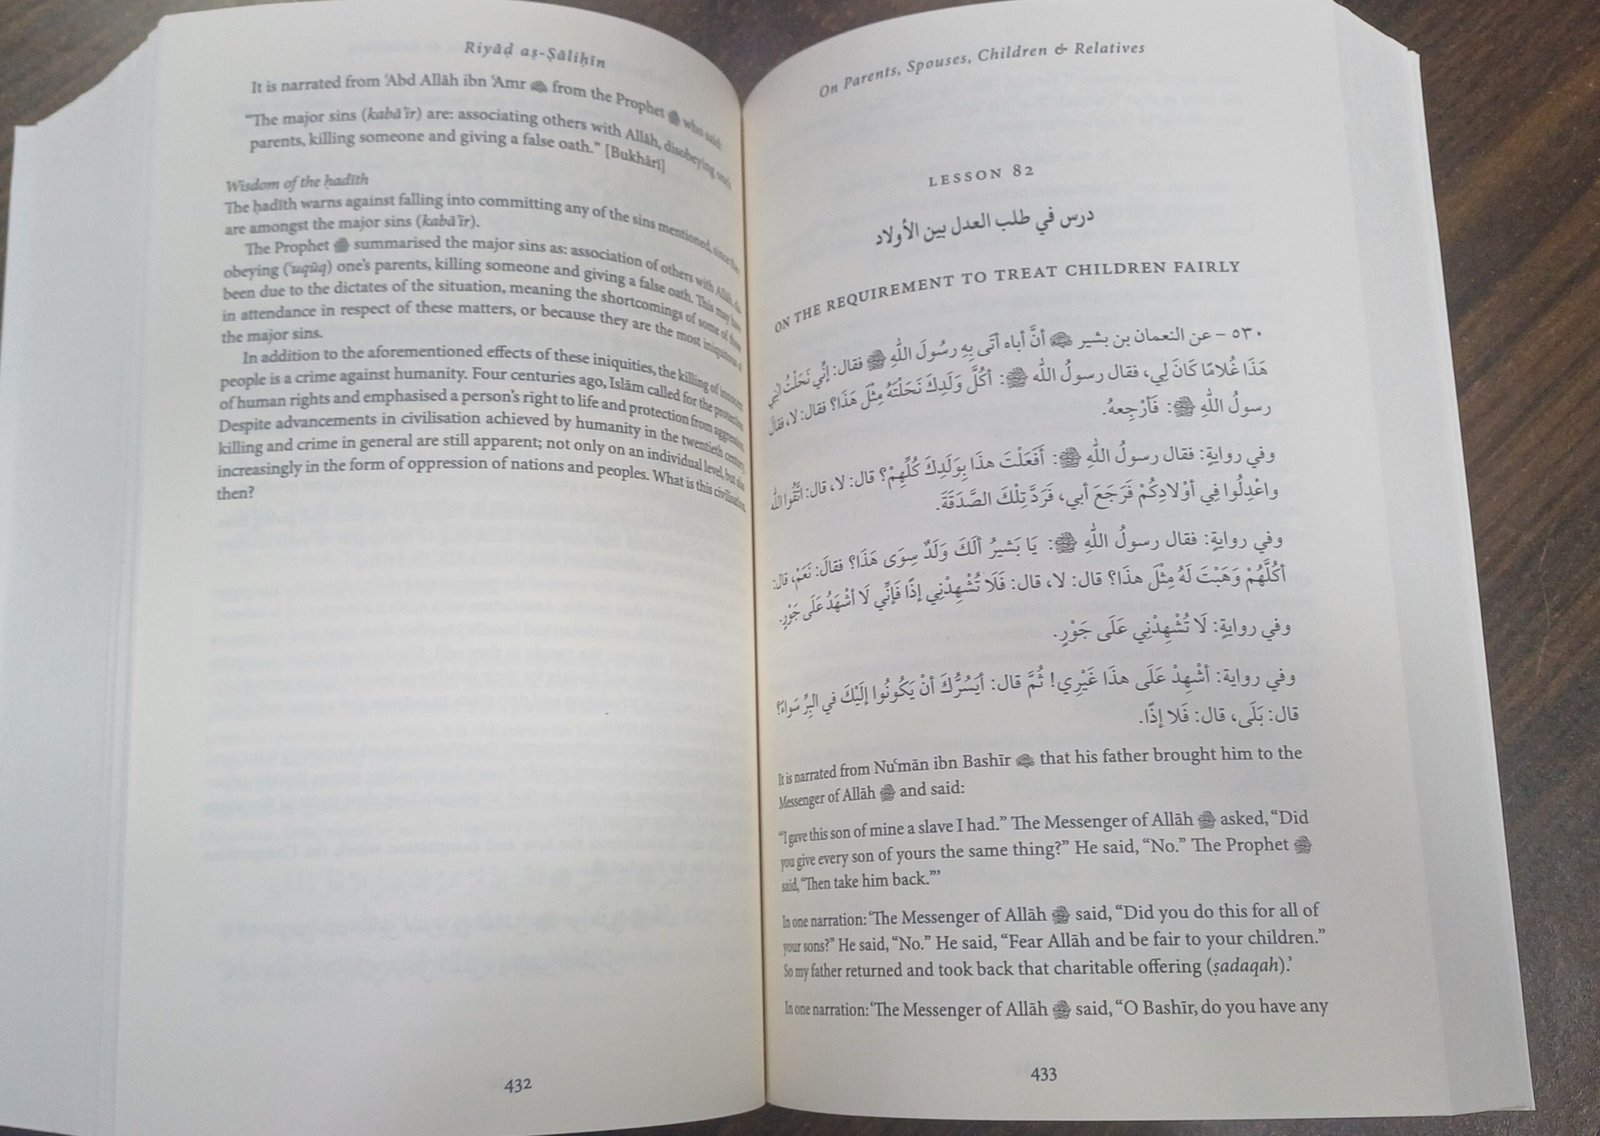 Riyāḍ aṣ-Ṣāliḥīn
It is narrated from ʿAbd Allāh ibn ʿAmr from the Prophet ﷺ who said:
“The major sins (kabāʾir) are: associating others with Allāh, disobeying one’s
parents, killing someone and giving a false oath.” [Bukhārī]
Wisdom of the ḥadīth
The ḥadīth warns against falling into committing any of the sins mentioned, since they
are amongst the major sins (kabāʾir).
The Prophet ﷺ summarised the major sins as: association of others with Allāh,
obeying (ʿuqūq) one’s parents, killing someone and giving a false oath. This may have
been due to the dictates of the situation, meaning the shortcomings of some of those
in attendance in respect of these matters, or because they are the most iniquitous of
the major sins.
In addition to the aforementioned effects of these iniquities, the killing of innocent
people is a crime against humanity. Four centuries ago, Islām called for the protection
of human rights and emphasised a person’s right to life and protection from aggression.
Despite advancements in civilisation achieved by humanity in the twentieth century,
killing and crime in general are still apparent; not only on an individual level, but also
increasingly in the form of oppression of nations and peoples. What is this civilisation,
then?
432
On Parents, Spouses, Children & Relatives
LESSON 82
درس في طلب العدل بين الأولاد
ON THE REQUIREMENT TO TREAT CHILDREN FAIRLY
٥٣٠ – عن النعمان بن بشير أنَّ أباه أتَى بِهِ رسُولَ اللّٰهِ ﷺ فقال: إنِّي نَحَلْتُ ابْنِي
هَذَا غُلامًا كَانَ لِي، فقال رسولُ اللّٰه ﷺ: أكُلَّ وَلَدِكَ نَحَلْتَهُ مِثْلَ هَذَا؟ فقال: لا، فقال
رسولُ اللّٰهِ ﷺ: فَأرْجِعهُ.
وفي روايةٍ: فقال رسولُ اللّٰهِ ﷺ: أفَعَلْتَ هذَا بِوَلَدِكَ كُلِّهِمْ؟ قال: لا، قال: اتَّقُوا اللّٰه
واعْدِلُوا فِي أوْلادِكُمْ فَرَجَعَ أبي، فَرَدَّ تِلْكَ الصَّدَقَةَ.
وفي روايةٍ: فقال رسولُ اللّٰهِ ﷺ: يَا بَشيرُ ألَكَ وَلَدٌ سِوَى هَذَا؟ فقالَ: نَعَمْ، قال:
أكُلَّهُمْ وَهَبْتَ لَهُ مِثْلَ هذَا؟ قال: لا، قال: فَلَا تُشْهِدْنِي إذًا فَإنِّي لَا أشْهَدُ عَلَى جَوْرٍ.
وفي روايةٍ: لَا تُشْهِدْنِي عَلَى جَوْرٍ.
وفي رواية: أشْهِدْ عَلَى هذَا غَيْرِي! ثُمَّ قال: أيَسُرُّكَ أنْ يَكُونُوا إلَيْكَ في البِرِّ سَواءً؟
قال: بَلَى، قال: فَلا إذًا.
It is narrated from Nuʿmān ibn Bashīr that his father brought him to the
Messenger of Allāh ﷺ and said:
“I gave this son of mine a slave I had.” The Messenger of Allāh ﷺ asked, “Did
you give every son of yours the same thing?” He said, “No.” The Prophet ﷺ
said, “Then take him back.”’
In one narration: ‘The Messenger of Allāh ﷺ said, “Did you do this for all of
your sons?” He said, “No.” He said, “Fear Allāh and be fair to your children.”
So my father returned and took back that charitable offering (ṣadaqah).’
In one narration: ‘The Messenger of Allāh ﷺ said, “O Bashīr, do you have any
433